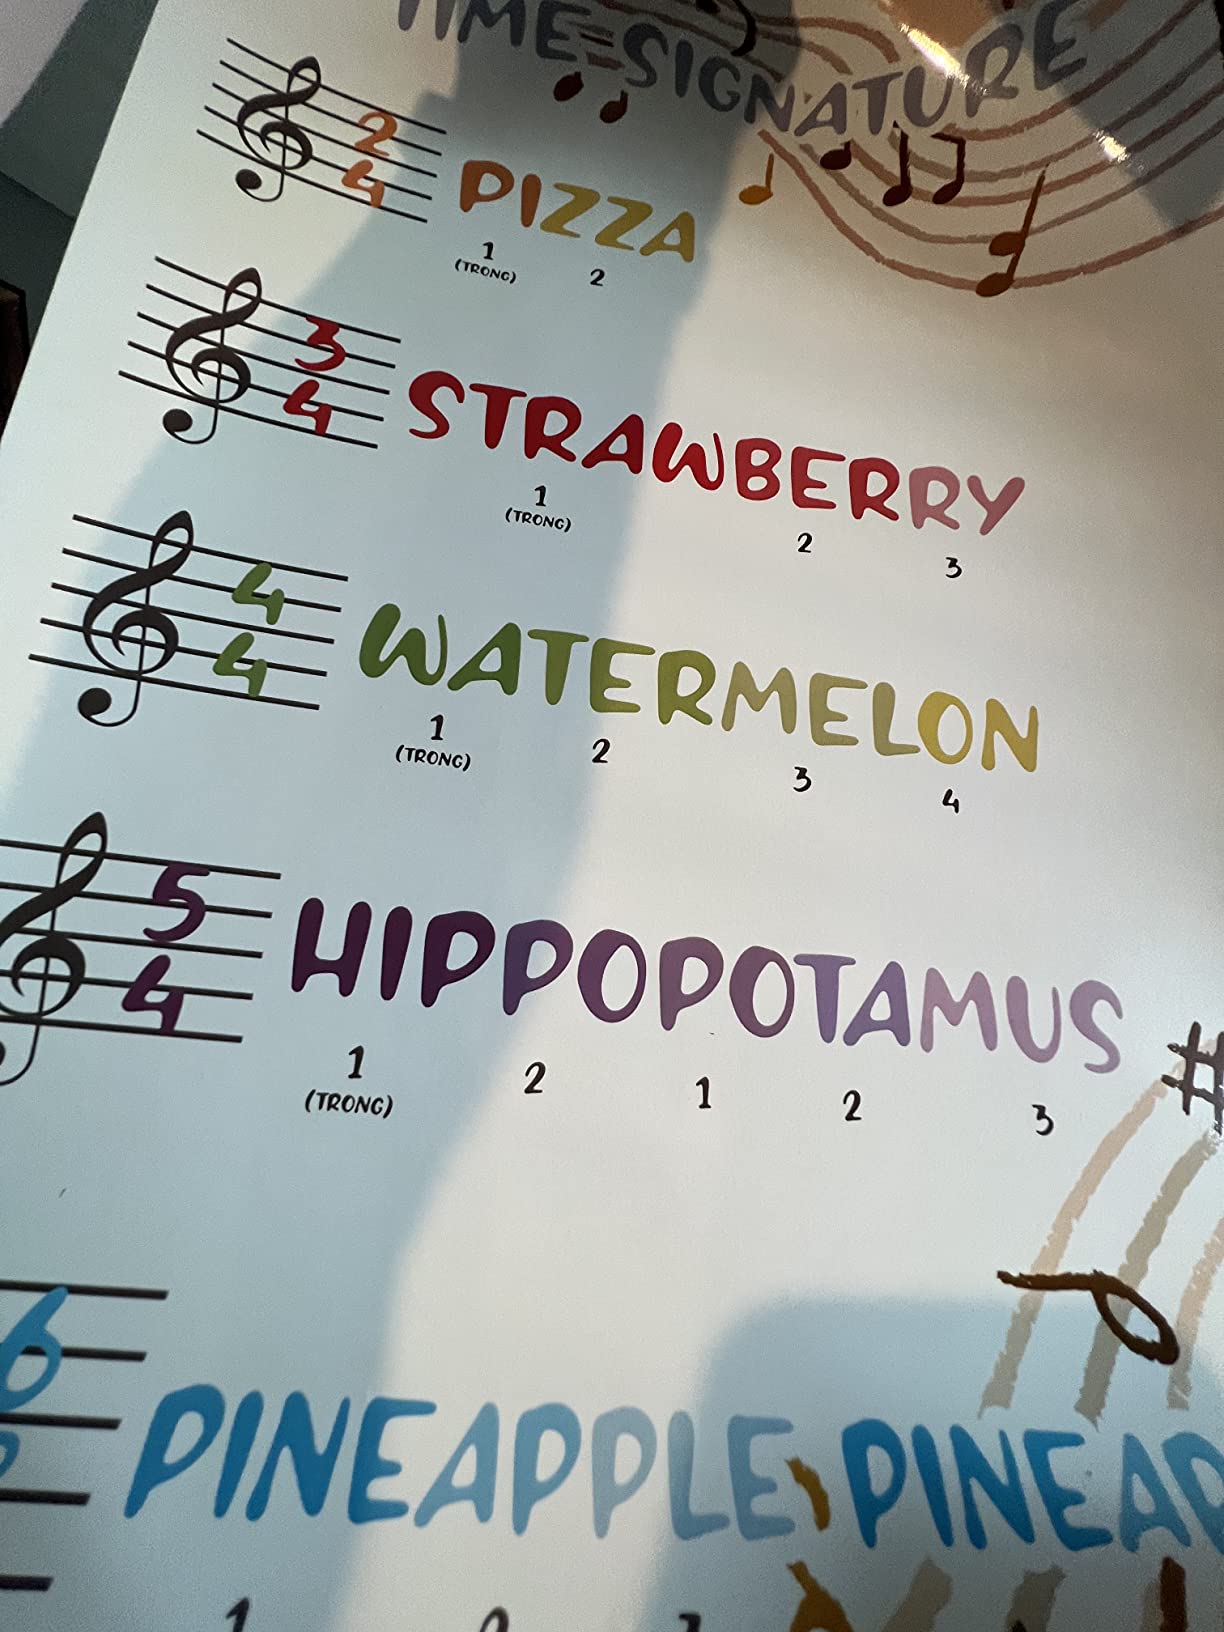 TIME SIGNATURE
2
4
PIZZA
1 2
(TRONG)
3
4
STRAWBERRY
1 2 3
(TRONG)
4
4
WATERMELON
1 2 3 4
(TRONG)
5
4
HIPPOPOTAMUS
1 2 1 2 3
(TRONG)
6
PINEAPPLE, PINEAP
1 2